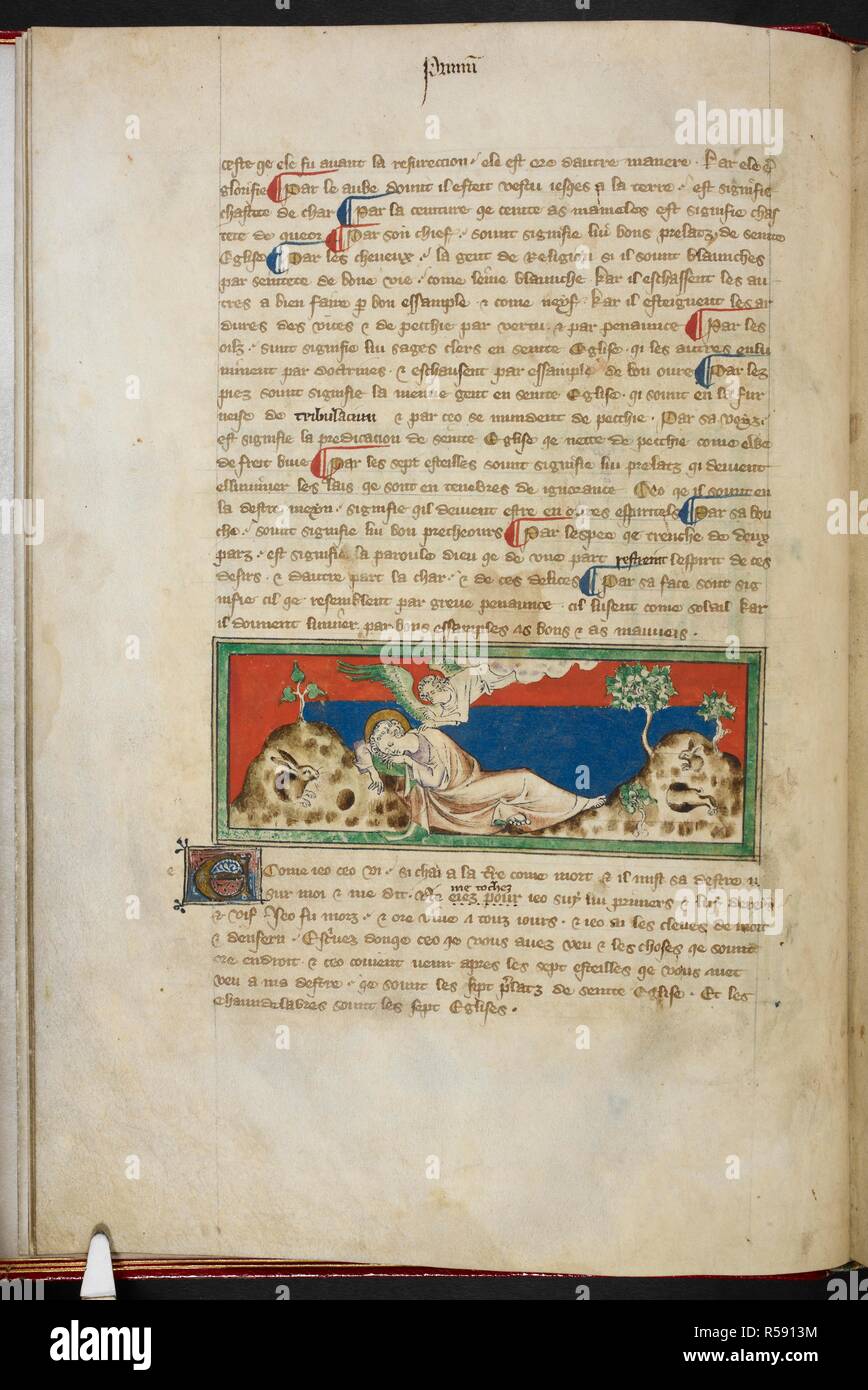 ceste qe ele fu auant la resurection · ele est ore dautre manere · Kar ele
glorifie Par le aube dount il esteit vestu iesqes a la terre · est signifie
chastete de char Par la ceinture qe ceinte as mameles est signifie chas
tete de queor Par son chief · sount signifie bons prelatz de seinte
Eglise Par les cheueux · la gent de Religion si il sount blaunches
par seintete de bone vie · come leine blaunche Kar il eschaffent les au
tres a bien faire p bon essample · & come neyf · Kar il esteignent les ar
dures des vices & de pecchie par vertu · & par penaunce Par les
oilz · sunt signifie sages clers en seinte Eglise · qi les autres enlu
minent par doctrines · & eschaufent par essample de bon oure Par lez
piez sount signifie la menue gent en seinte Eglise · qi sount en la fur
neise de tribulaciun & par ceo se mundent de pecchie · Par sa voyz ·
est signifie la predicacion de seinte Eglise qe nette de pecchie come
de freit Par les sept esteilles sount signifie prelatz qi deiuent
les lais qe sont en tenebres de ignorance Ceo qe il sount en
la destre meyn · signifie qil deiuent estre en espiriteles Par sa bou
che · sount signifie bon prechours Par lespee qe trenche de deux
parz · est signifie la paroule dieu qe de vne part restreint lespirit de ces
desirs · & dautre part la char · & de ces delices Par sa face sont sig
nifie cil qe resemblent par greue penaunce · cil luisent come solail Kar
il doinent par bons essamples as bons & as mauueis ·
Come ieo ceo vi · si chai a la tre come mort & il mist sa destre
sur moi & me dit · pour ieo suy primers &
me tochez
& vif Ieo fu morz · & ore viue a touz iours · & ieo ai les cleues de mort
& denfern · donqe ceo qe vous auez veu & les choses qe sount
ore endroit · & ceo couient venir apres les sept esteilles qe vous auet
veu a ma destre · qe sount les sept platz de seinte Eglise · Et les
Chaundelabres sount les sept Eglises ·
alamy
Image ID: R5913M
www.alamy.com